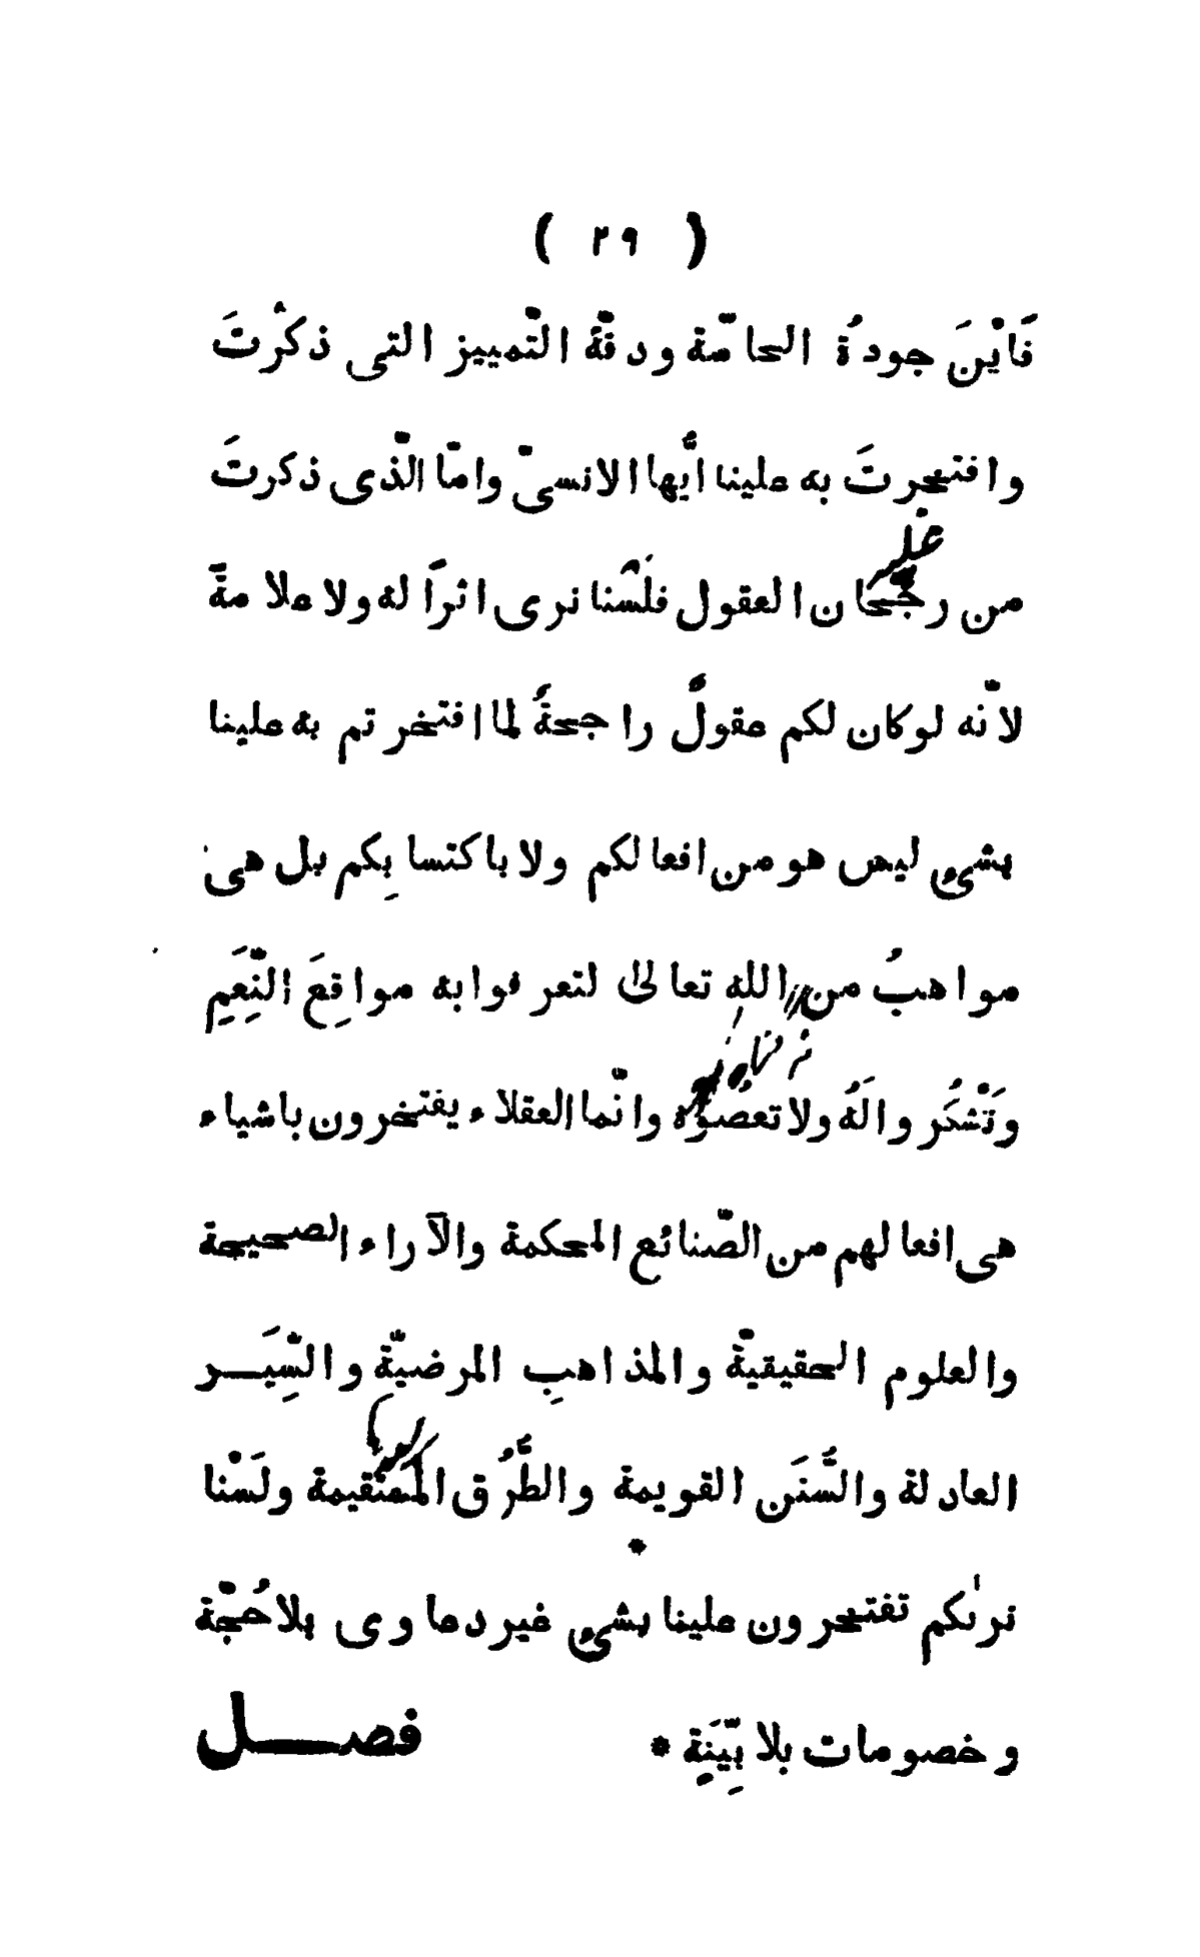 ( ٢٩ )
فَاَيْنَ جودةُ الحاسّة ودقّة التّمييز التى ذكرْتَ
وافتخرتَ به علينا ايُّها الانسىّ وامّا الّذى ذكرتَ
من رجّحان العقول فلَسْنا نرى اثراً له ولا علامةً
لانّه لوكان لكم عقولٌ راجحةٌ لما افتخرتم به علينا
بشىء ليس هو من افعالكم ولا باكتسابِكم بل هى
مواهبُ من الله تعالىٰ لتعرفوا به مواقِعَ النِّعَمِ
وَتْشكُروا لَهُ ولا تعصُوْه وانّما العقلاء يفتخرون باشياء
هى افعالهم من الصّنائع المحكمة والآراء الصحيحة
والعلوم الحقيقيّة والمذاهبِ المرضيّةِ والسِّيَر
العادلة والسُّنَن القويمة والطُّرُق المستقيمة ولَسْنا
نرٰىكم تفتخرون علينا بشىء غير دعاوى بلا حُجّة
وخصومات بلا بيِّنَةٍ * فصل